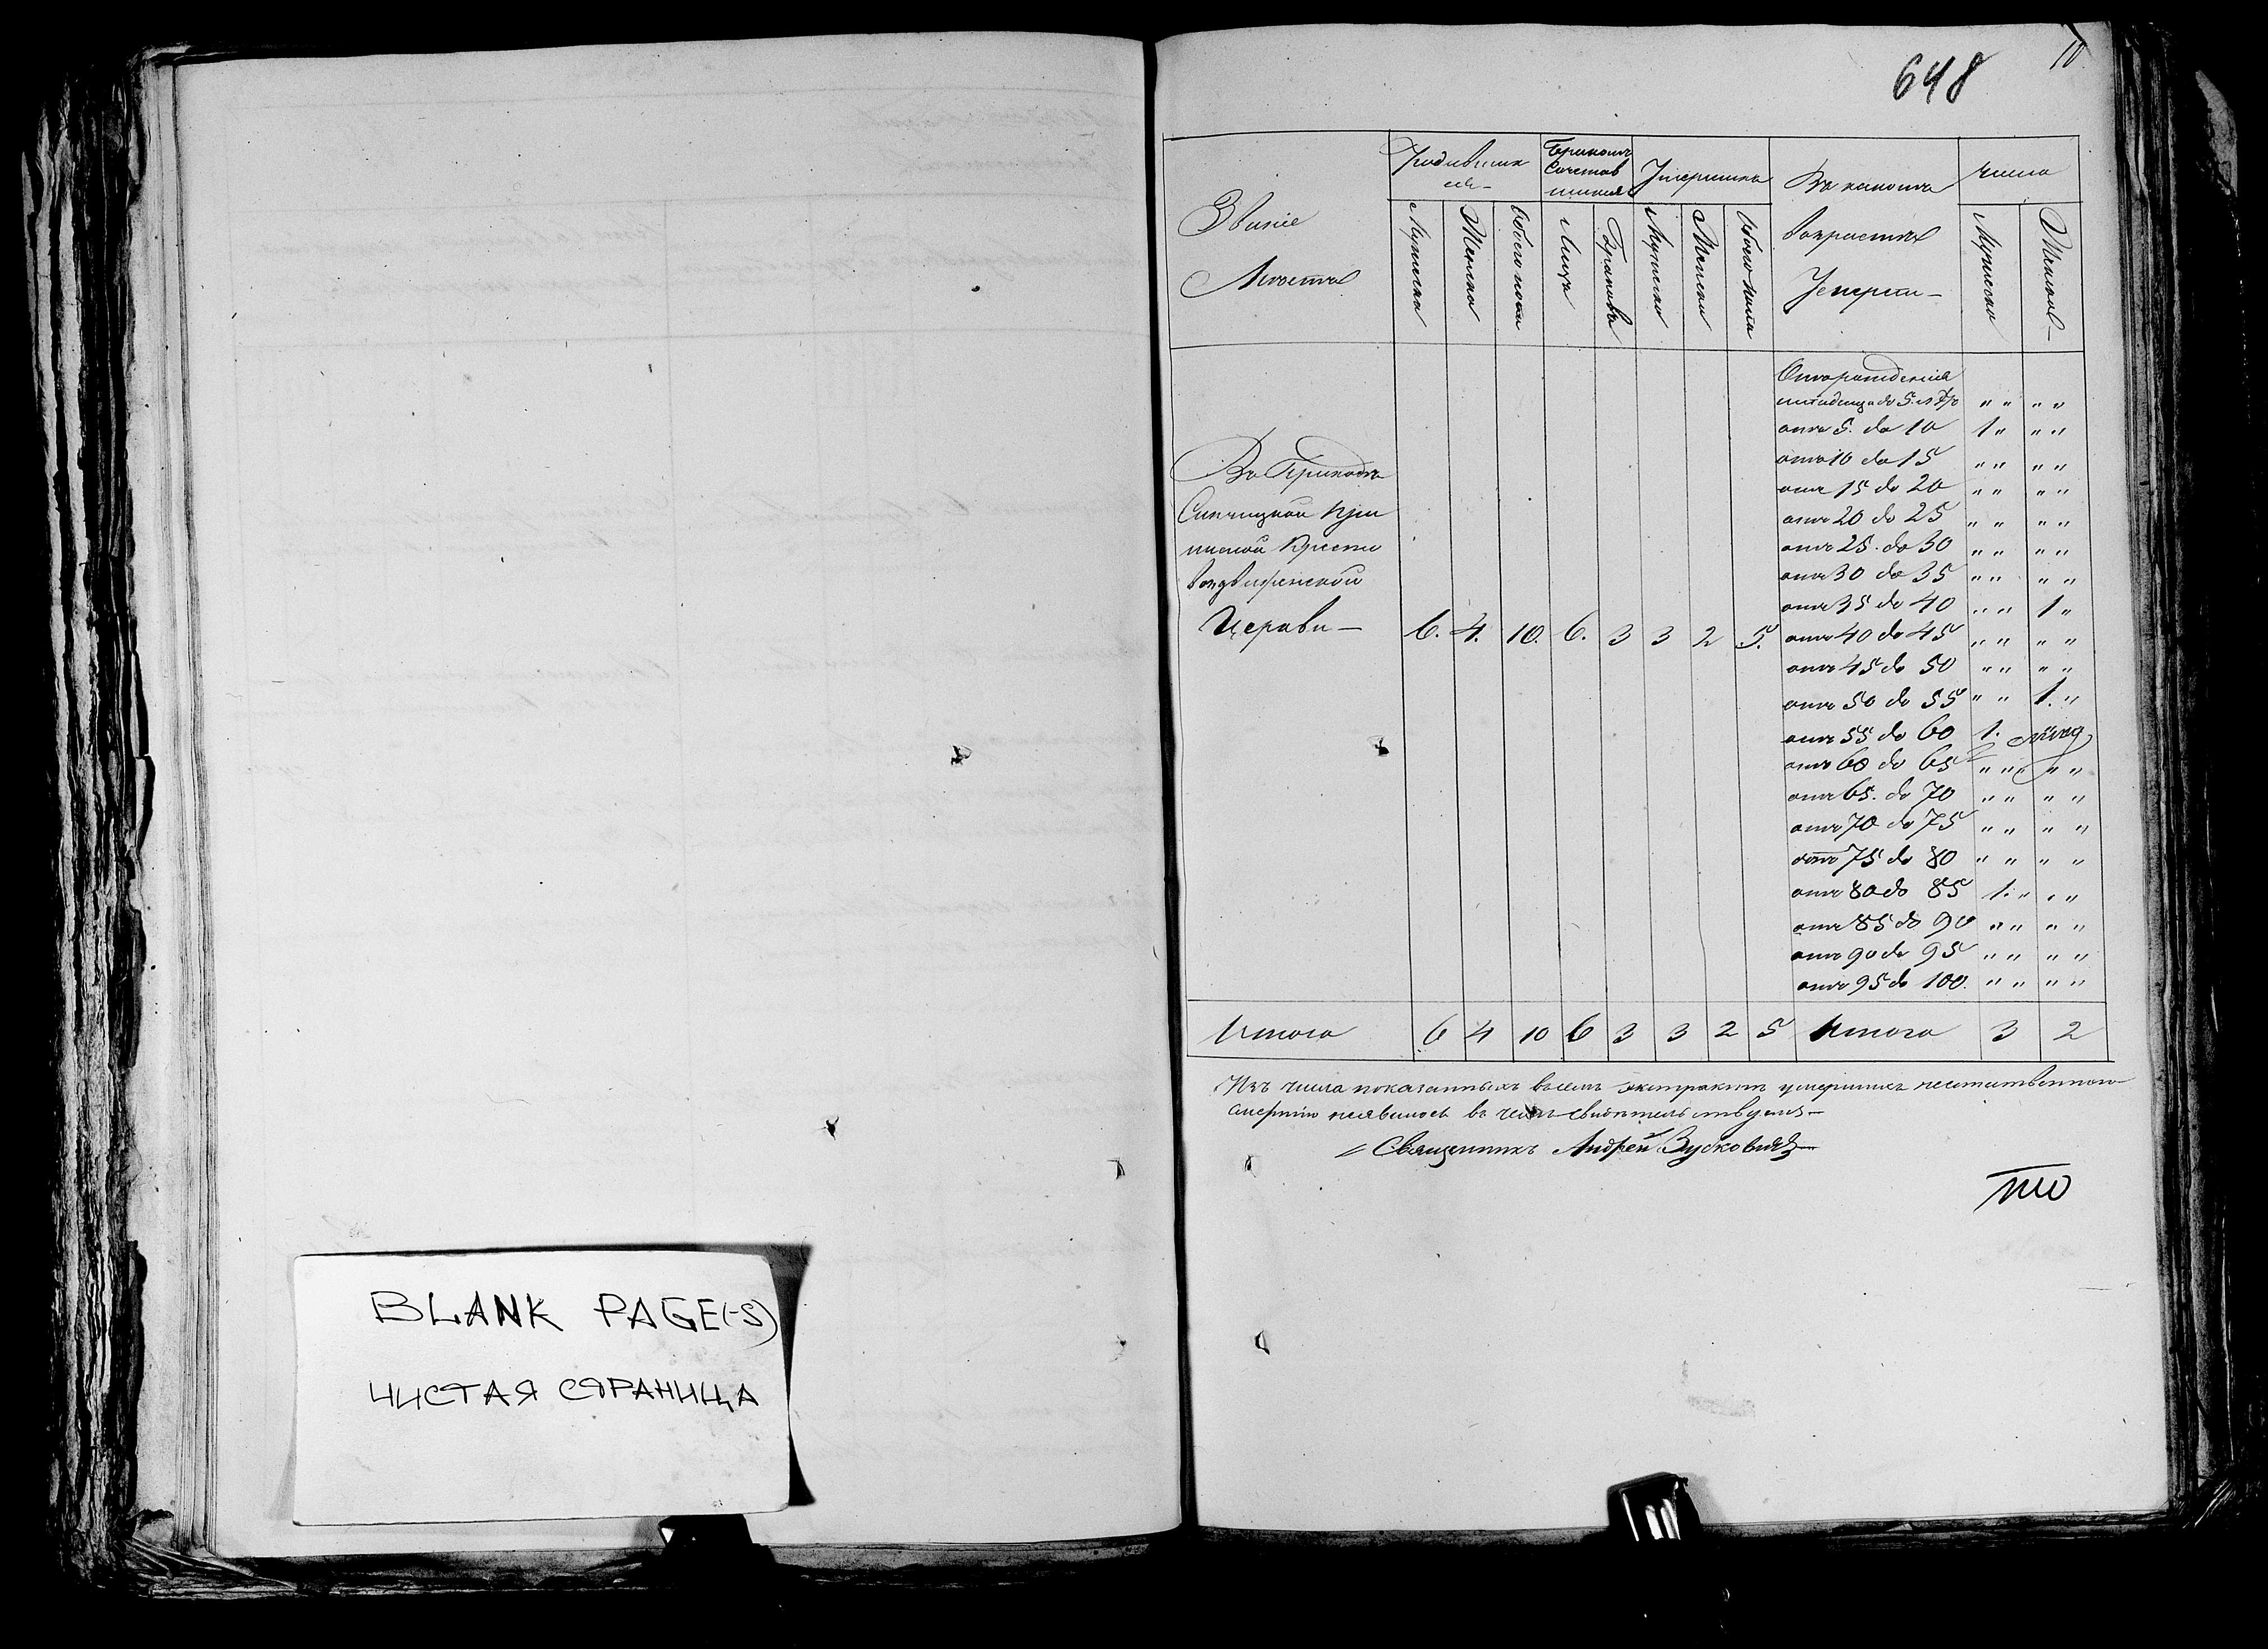 BLANK PAGE(-S)
ЧИСТАЯ СТРАНИЦА
10
648
Званіе
Места
Родивших
ся
Бракомъ
Сочетав
шихся
Умершихъ
Въ какомъ
возрасте
Умерли
Число
Мужеска
Женска
Обоего пола
Лицъ
Браковъ
Мужеска
Женска
Обоего пола
Мужеска
Женска
Отъ рожденія
до 5.
отъ 5. до 10 1 " " "
отъ 10 до 15 " " " "
отъ 15 до 20 " " " "
отъ 20 до 25 " " " "
отъ 25. до 30 " " " "
отъ 30 до 35 " " " "
отъ 35 до 40 " " 1 "
отъ 40 до 45 " " " "
отъ 45 до 50 " " " "
отъ 50 до 55 " " 1. "
отъ 55 до 60 1.
отъ 60 до 65 " " " "
отъ 65. до 70 " " " "
отъ 70 до 75 " " " "
отъ 75 до 80 " " " "
отъ 80 до 85 1. " " "
отъ 85 до 90 " " " "
отъ 90 до 95 " " " "
отъ 95 до 100. " " " "
Въ Приходе
Кресто
воздвиженской
Церкви — 6. 4. 10. 6. 3 3 2 5.
Итого 6 4 10 6 3 3 2 5 Итого 3 2
Изъ числа показанныхъ въ семъ экстракте умершихъ неестественною
смертію неявилось въ чемъ свидетельствуемъ —
Священникъ Андрей Зубковичъ